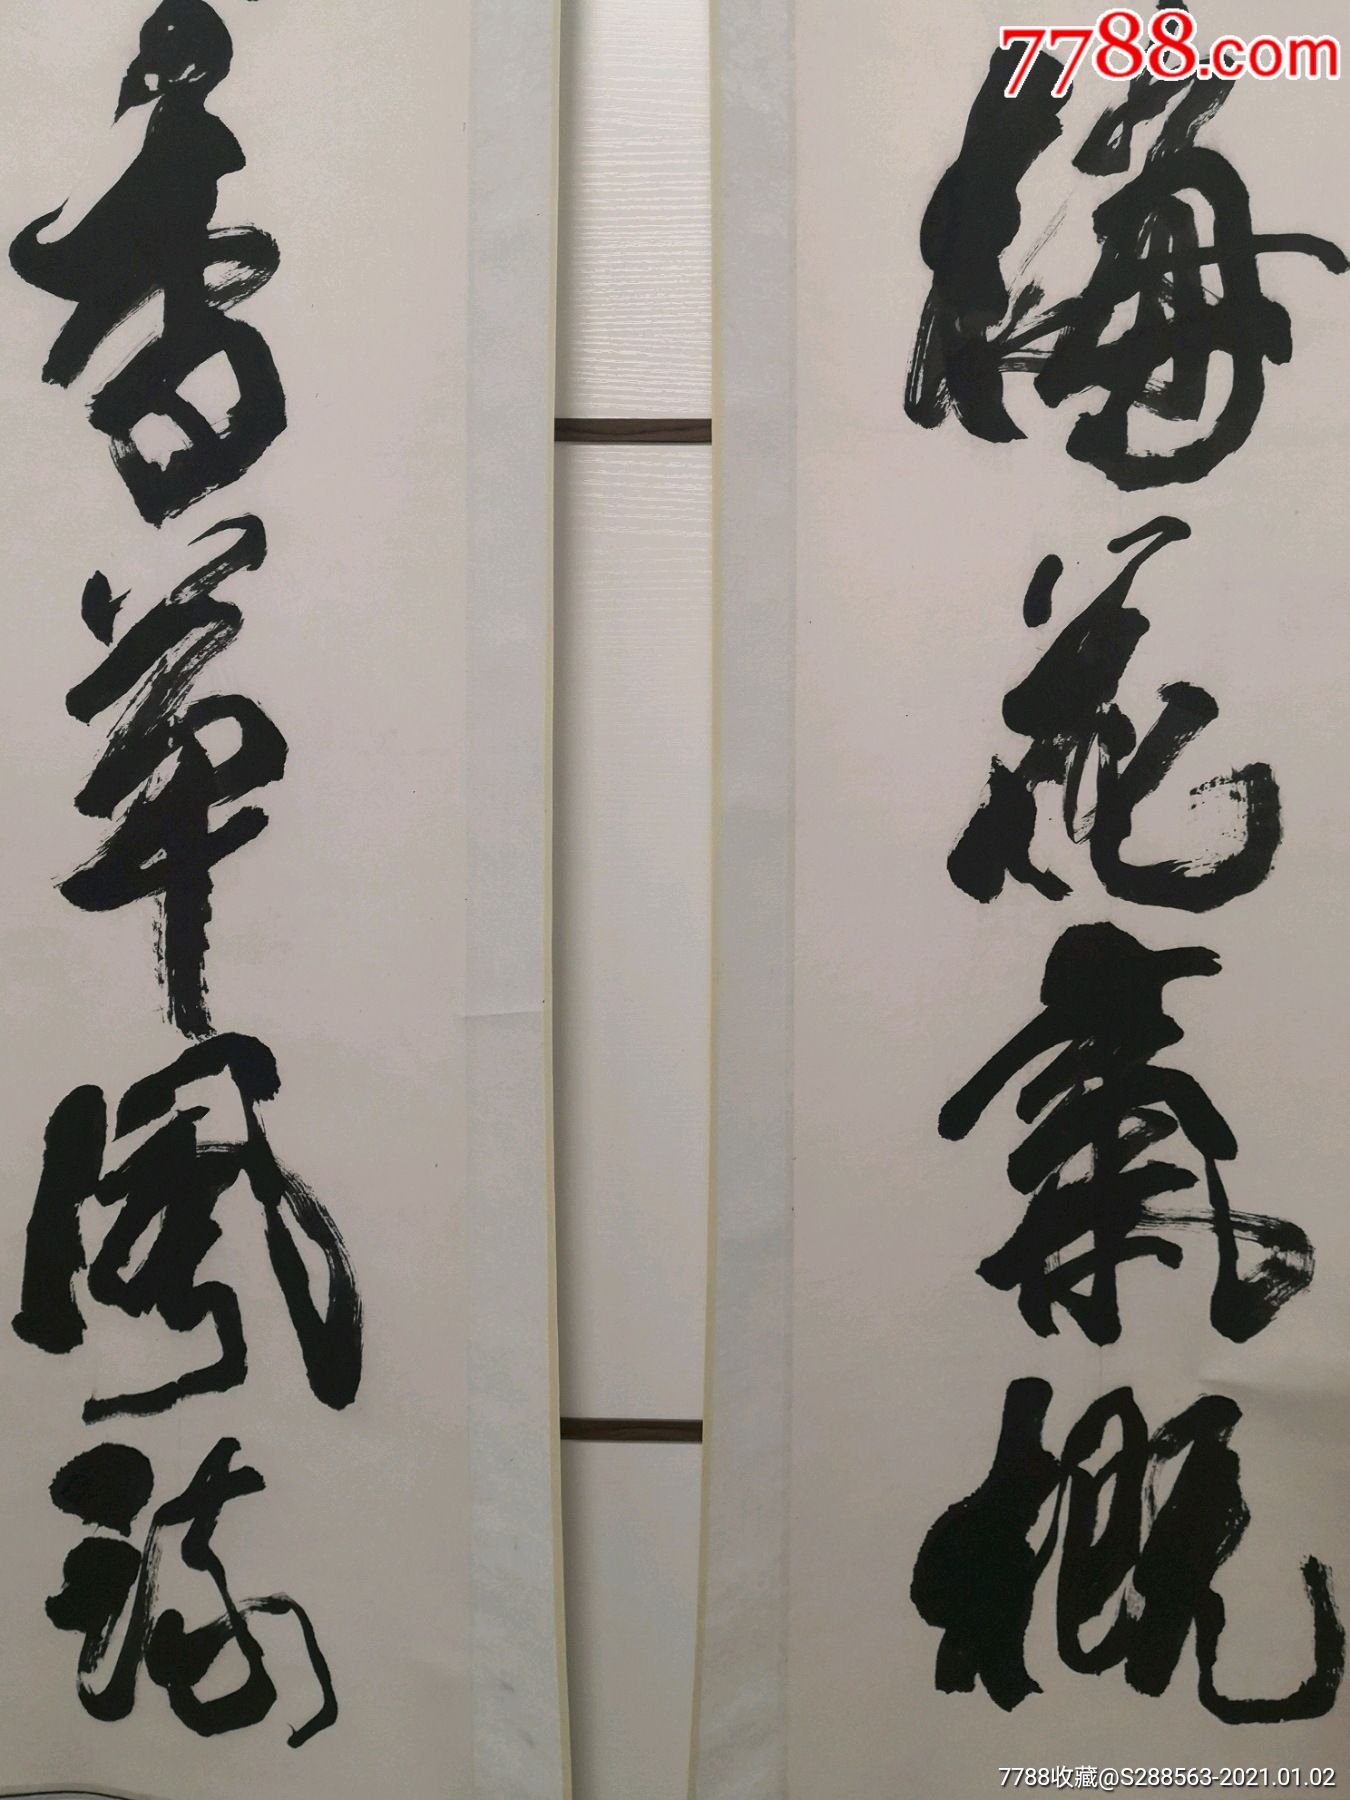 7788.com
梅花氣概
香草風流
7788收藏@S288563-2021.01.02